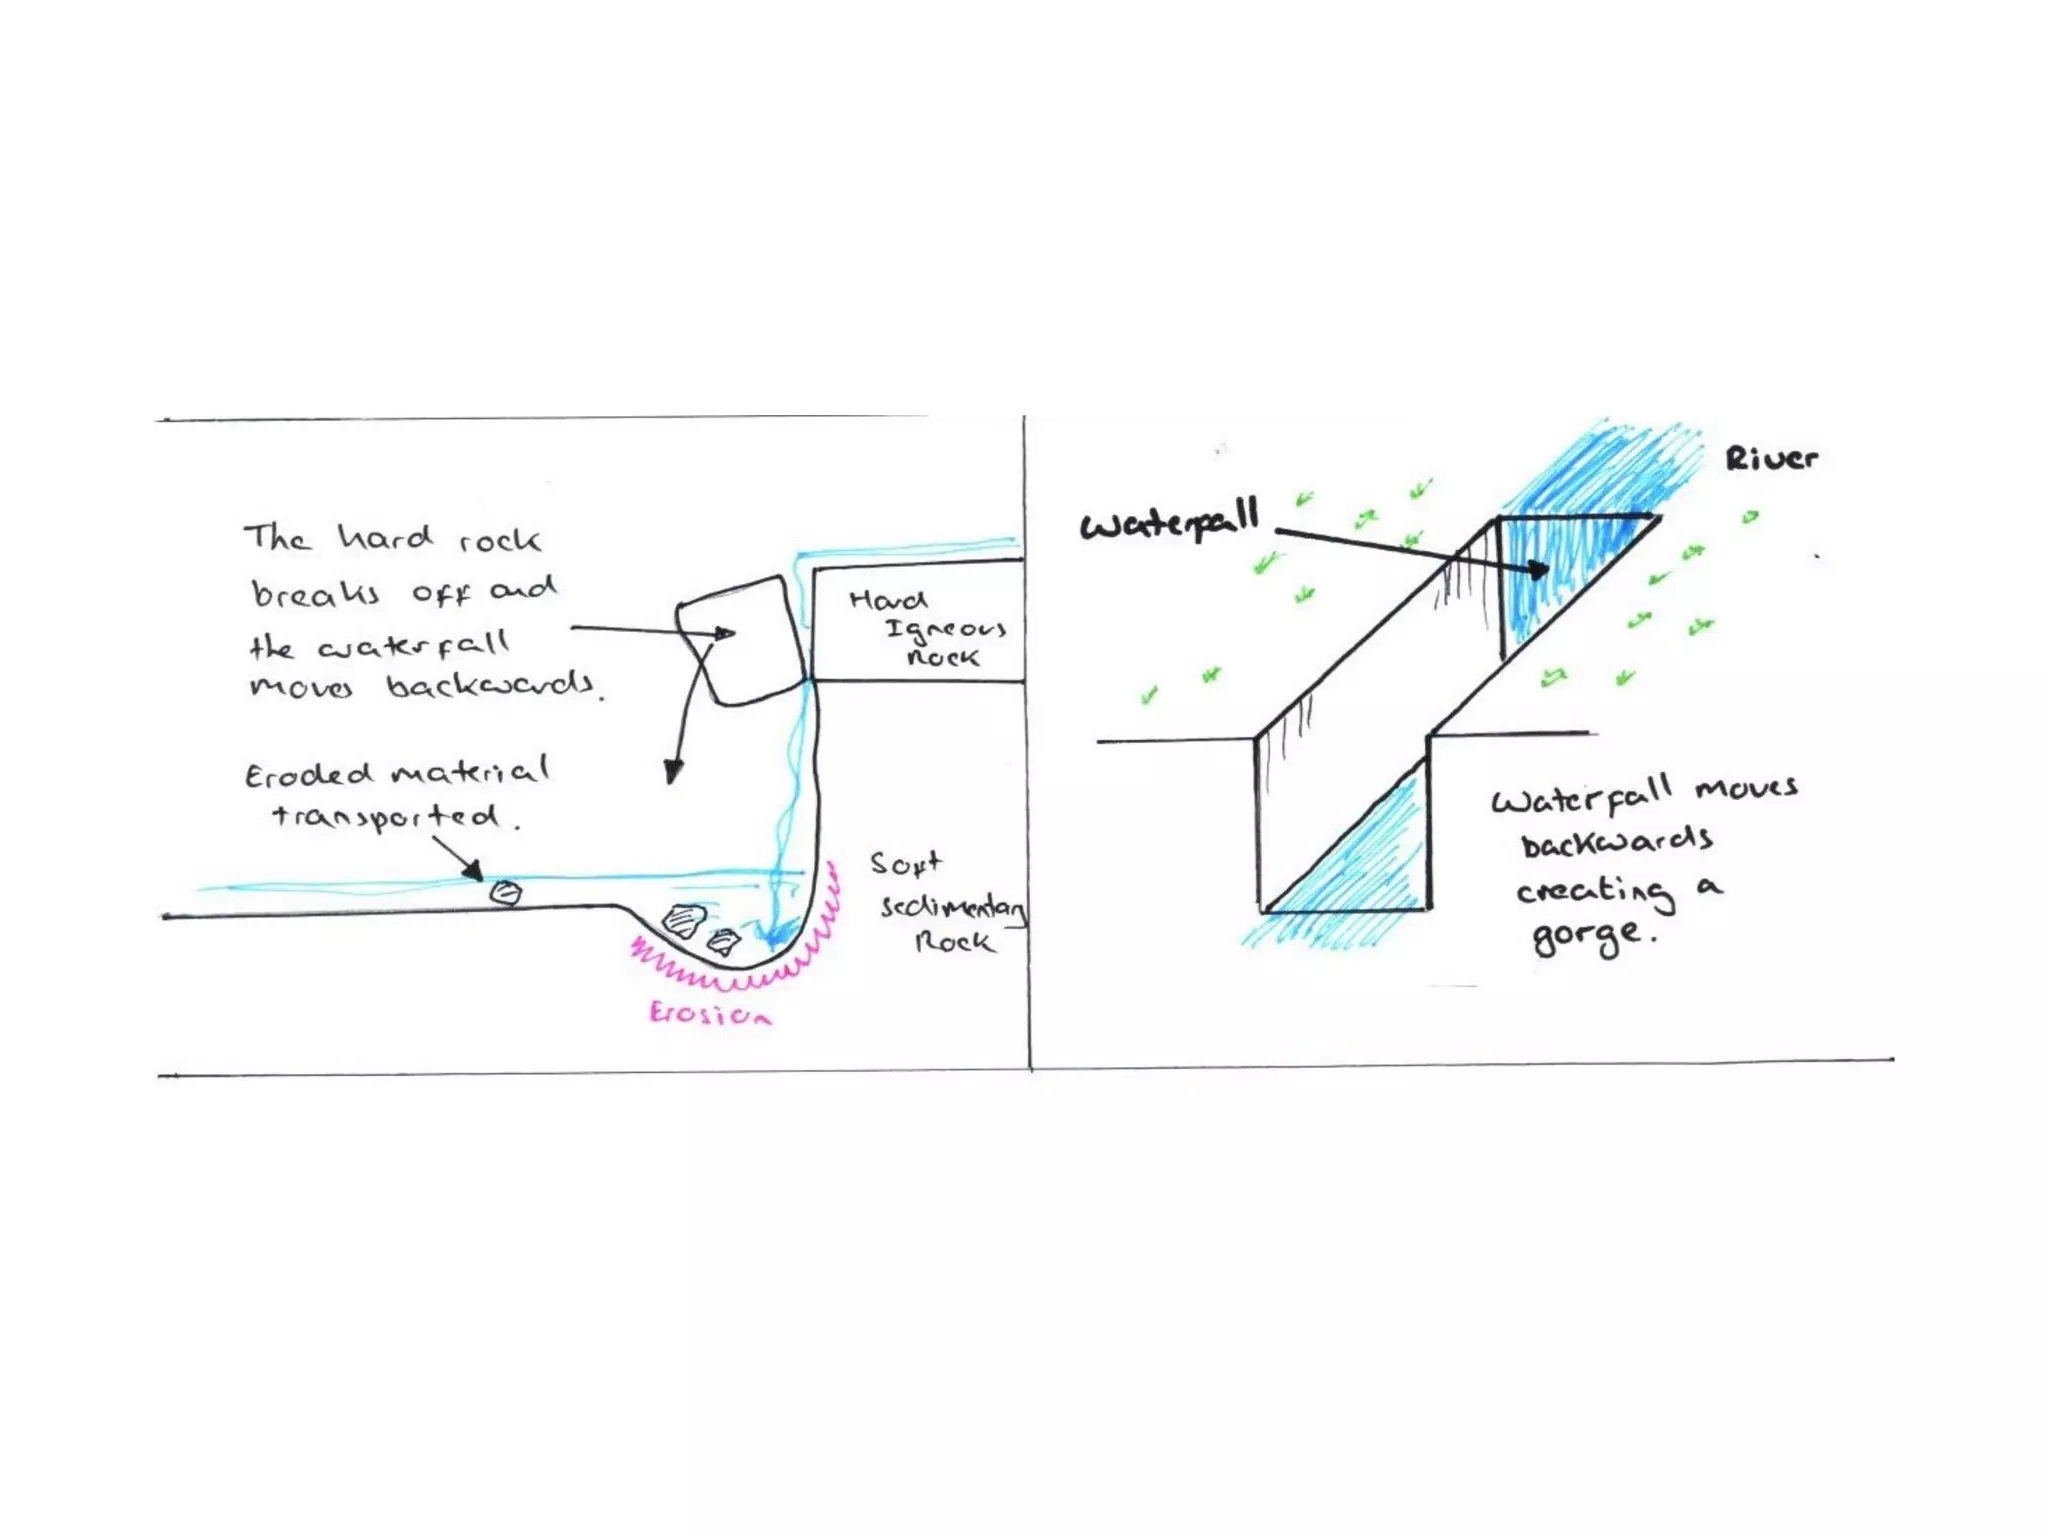 The hard rock
breaks off and
the waterfall
moves backwards.
Eroded material
transported.
Hard
Igneous
Rock
Soft
Sedimentary
Rock
Erosion
River
Waterfall
Waterfall moves
backwards
creating a
gorge.